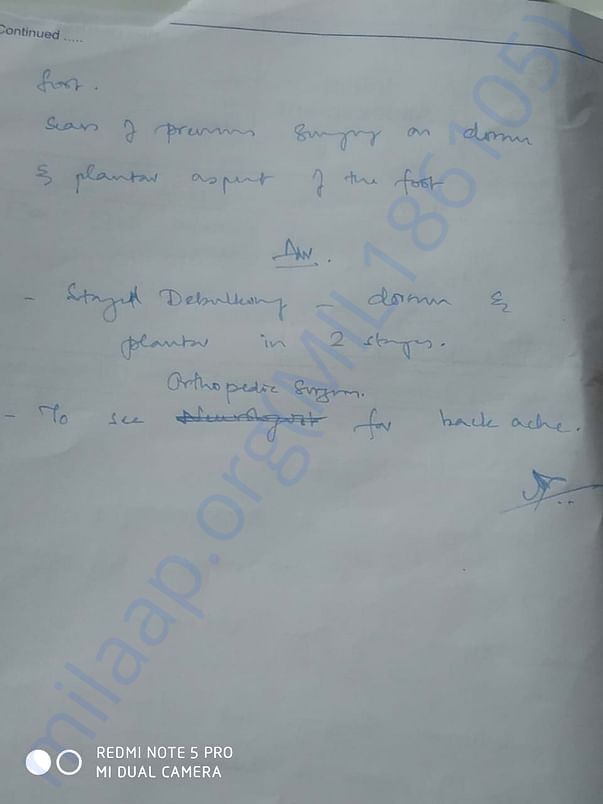 Continued .....
foot.
Scars of previous surgery on dorsum
& plantar aspect of the foot
Adv.
- Staged Debulking - dorsum &
plantar in 2 stages.
Orthopedic Surgeon.
- To see Neurologist for back ache.
milaap.org(MIL186105)
REDMI NOTE 5 PRO
MI DUAL CAMERA